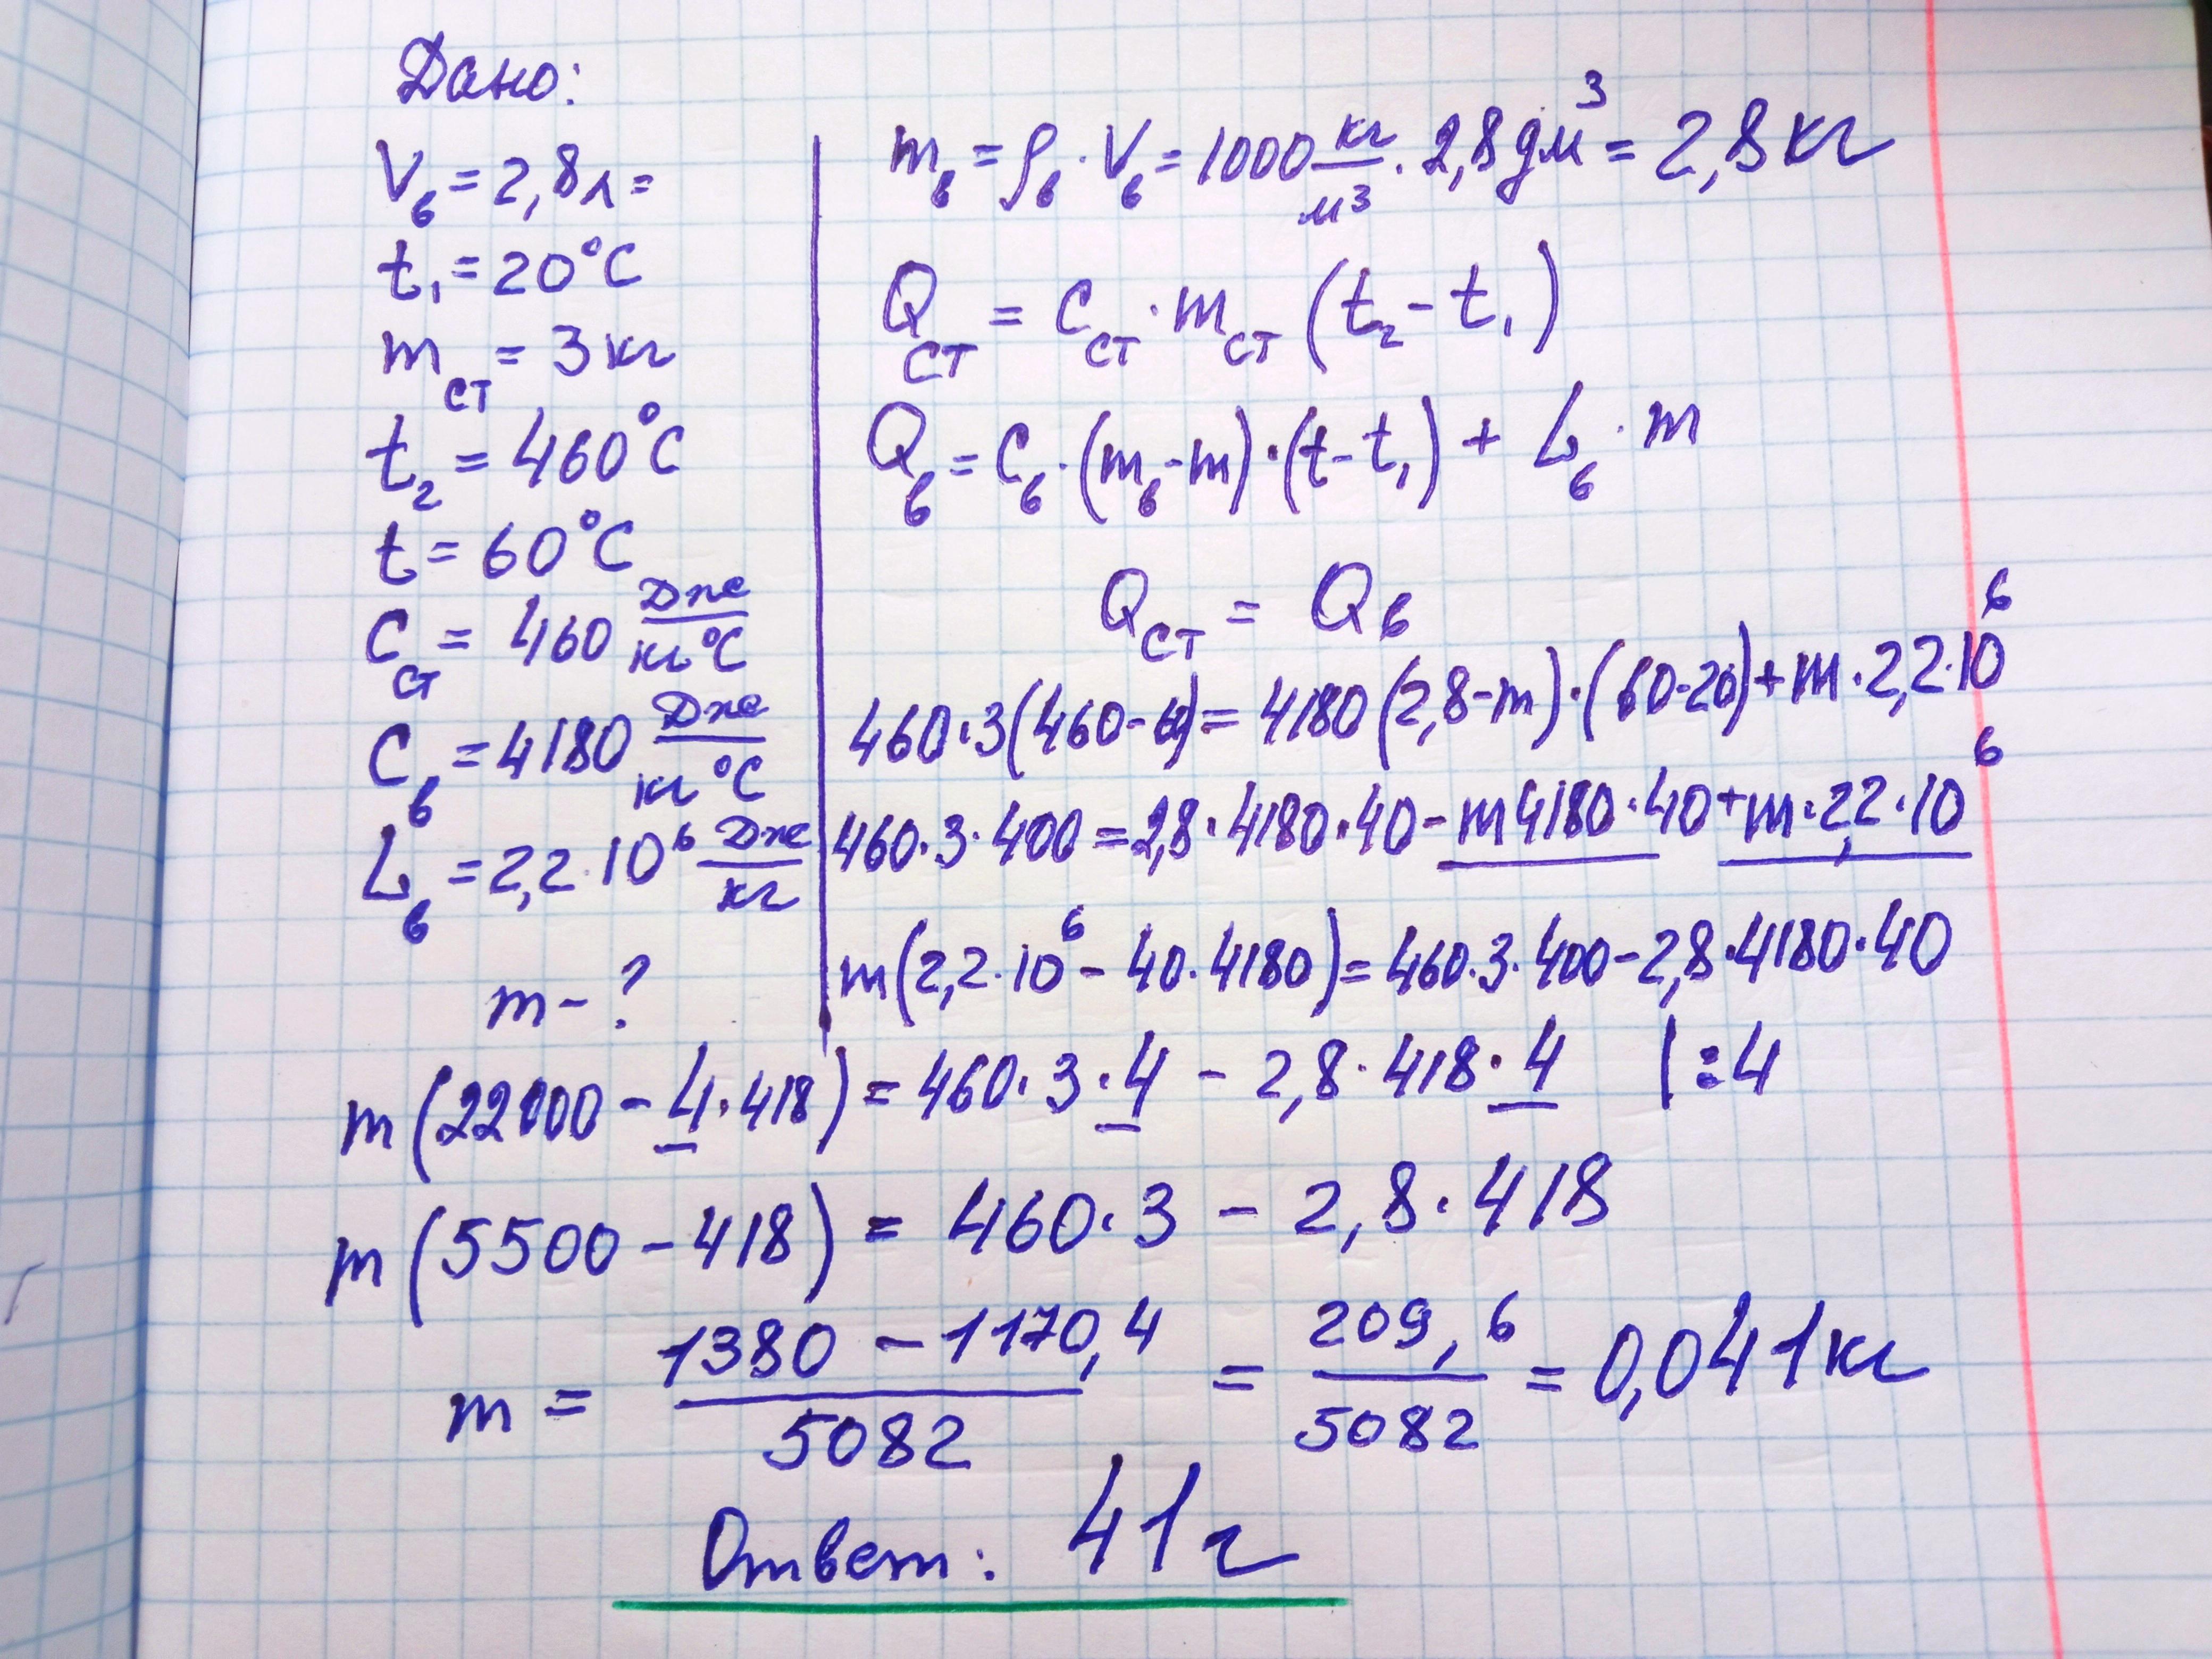 Дано:
V_в = 2,8 л =
t₁ = 20°C
m_ст = 3 кг
t₂ = 460°C
t = 60°C
C_ст = 460 Дж/кг°C
C_в = 4180 Дж/кг°C
L_в = 2,2·10⁶ Дж/кг
m - ?
m_в = ρ_в · V_в = 1000 кг/м³ · 2,8 дм³ = 2,8 кг
Q_ст = C_ст · m_ст (t₂ - t₁)
Q_в = C_в · (m_в - m) · (t - t₁) + L_в · m
Q_ст = Q_в
460·3(460-60) = 4180(2,8-m)·(60-20)+m·2,2·10⁶
460·3·400 = 2,8·4180·40 - m4180·40 + m·2,2·10⁶
m(2,2·10⁶ - 40·4180) = 460·3·400 - 2,8·4180·40
m(22000 - 4·418) = 460·3·4 - 2,8·418·4 |:4
m(5500 - 418) = 460·3 - 2,8·418
m = (1380 - 1170,4)/5082 = 209,6/5082 = 0,041 кг
Ответ: 41 г